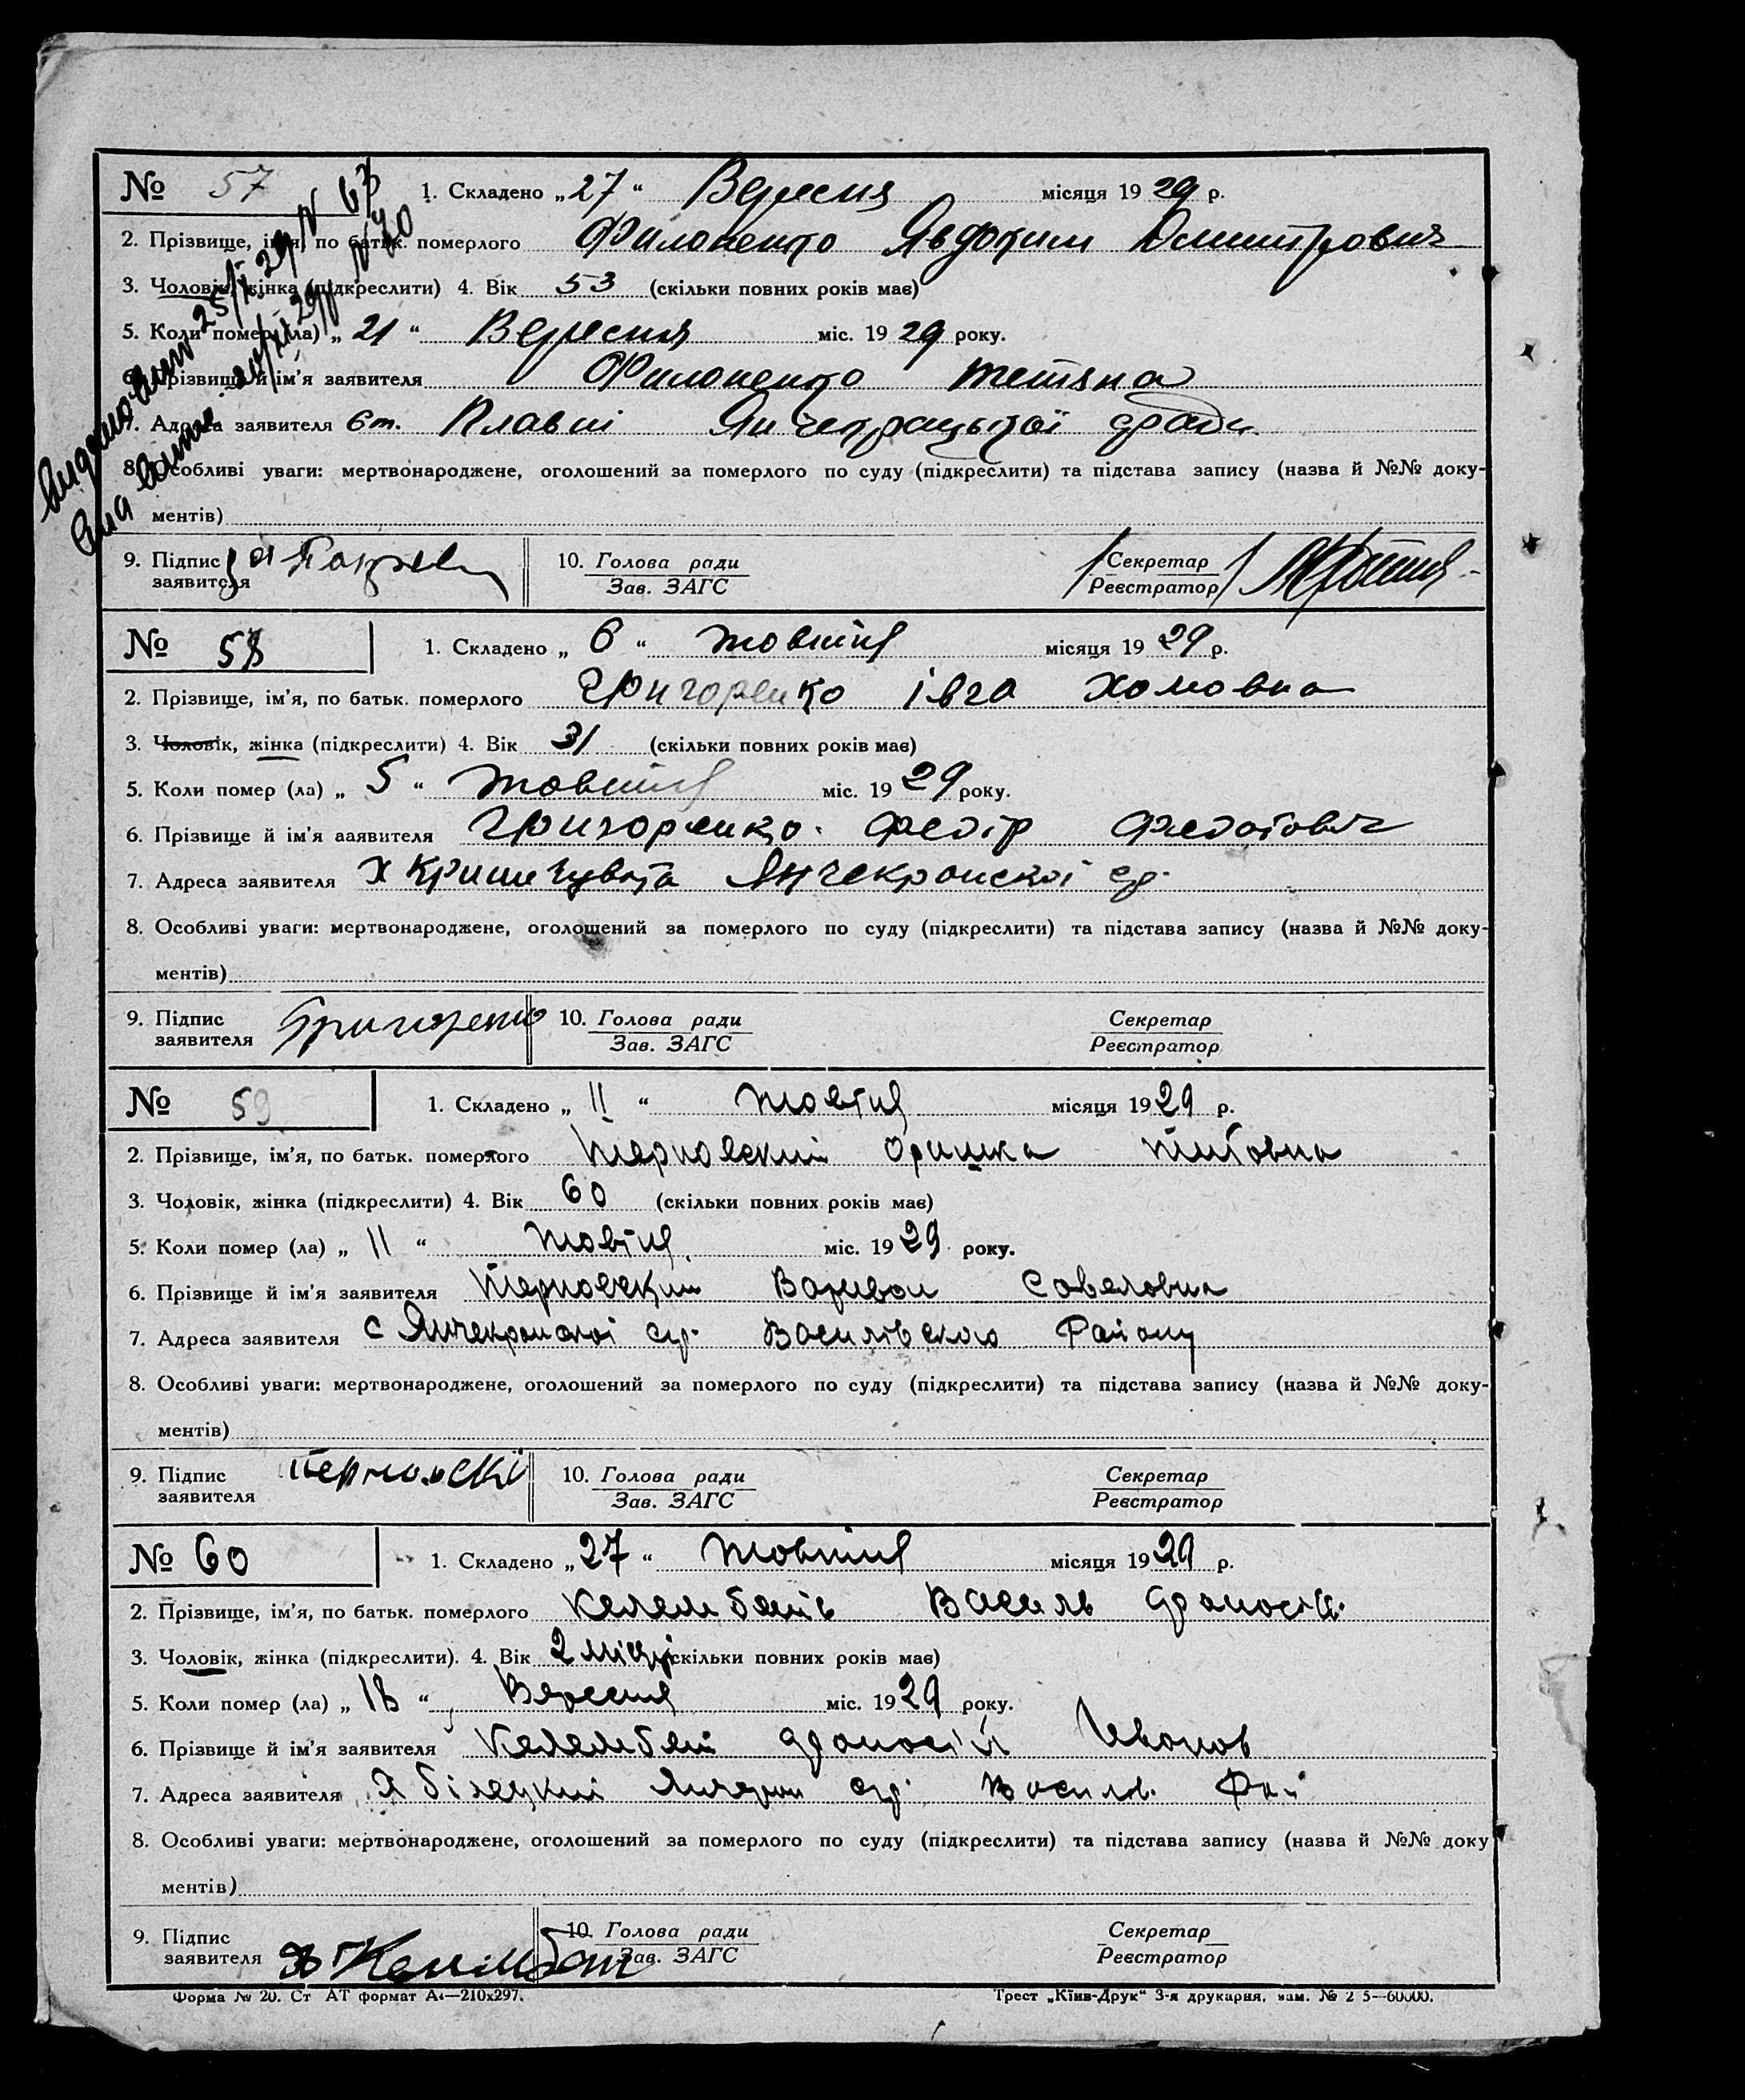 № 57 1. Складено „27“ Вересня місяця 1929 р.
2. Прізвище, ім'я, по батьк. померлого Филоненко Явдоким Дмитрович
3. Чоловік, жінка (підкреслити) 4. Вік 53 (скільки повних років має)
5. Коли помер (ла) „21“ Вересня міс. 1929 року.
6. Прізвище й ім'я заявителя Филоненко Тетяна
7. Адреса заявителя Плавні
8. Особливі уваги: мертвонароджене, оголошений за померлого по суду (підкреслити) та підстава запису (назва й №№ доку-
ментів)
9. Підпис заявителя 10. Голова ради Зав. ЗАГС Секретар Реєстратор
№ 58 1. Складено „6“ жовтня місяця 1929 р.
2. Прізвище, ім'я, по батьк. померлого Григоренко Івга Хомовна
3. Чоловік, жінка (підкреслити) 4. Вік 31 (скільки повних років має)
5. Коли помер (ла) „5“ жовтня міс. 1929 року.
6. Прізвище й ім'я заявителя Григоренко Федір Федотович
7. Адреса заявителя х Янчекракскої ср.
8. Особливі уваги: мертвонароджене, оголошений за померлого по суду (підкреслити) та підстава запису (назва й №№ доку-
ментів)
9. Підпис заявителя Григоренко 10. Голова ради Зав. ЗАГС Секретар Реєстратор
№ 59 1. Складено „11“ жовтня місяця 1929 р.
2. Прізвище, ім'я, по батьк. померлого Терновский Оришка Титовна
3. Чоловік, жінка (підкреслити) 4. Вік 60 (скільки повних років має)
5. Коли помер (ла) „11“ жовтня міс. 1929 року.
6. Прізвище й ім'я заявителя Терновский
7. Адреса заявителя с Янчекракскої ср. Василівского Району
8. Особливі уваги: мертвонароджене, оголошений за померлого по суду (підкреслити) та підстава запису (назва й №№ доку-
ментів)
9. Підпис заявителя Терновскі 10. Голова ради Зав. ЗАГС Секретар Реєстратор
№ 60 1. Складено „27“ жовтня місяця 1929 р.
2. Прізвище, ім'я, по батьк. померлого Василь
3. Чоловік, жінка (підкреслити). 4. Вік 2 місяці (скільки повних років має)
5. Коли помер (ла) „18“ Вересня міс. 1929 року.
6. Прізвище й ім'я заявителя Келембет
7. Адреса заявителя ср. Василів. Рай
8. Особливі уваги: мертвонароджене, оголошений за померлого по суду (підкреслити) та підстава запису (назва й №№ доку
ментів)
9. Підпис заявителя 10. Голова ради Зав. ЗАГС Секретар Реєстратор
Форма № 20. Ст АТ формат А4—210х297. Трест „Київ-Друк“ 3-я друкарня, зам. № 2 5—60000.